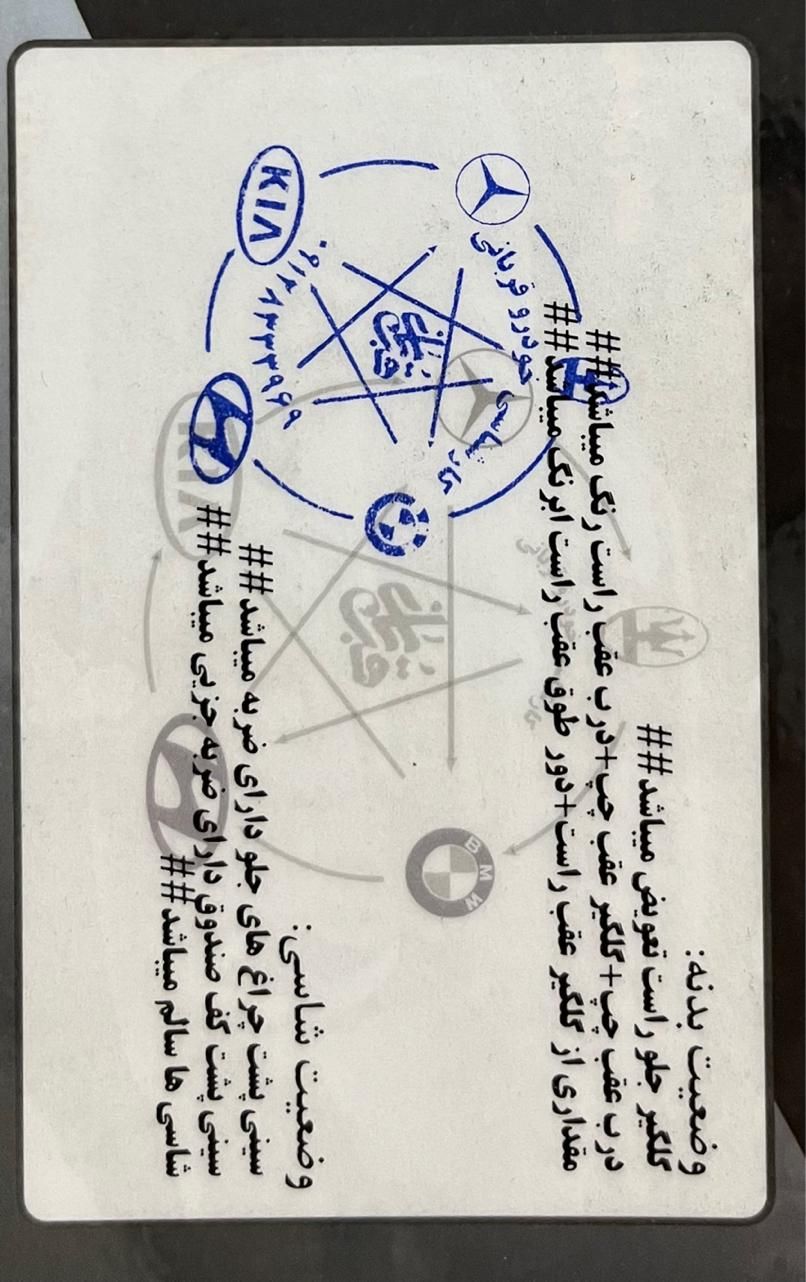 وضعیت بدنه:
گلگیر جلو راست تعویض میباشد##
درب عقب چپ+گلگیر عقب چپ+درب عقب راست رنگ میباشد##
مقداری از گلگیر عقب راست+دور طوق عقب راست ابرنگ میباشد##
وضعیت شاسی:
سینی پشت چراغ های جلو دارای ضربه میباشد##
سینی پشت کف صندوق دارای ضربه جزیی میباشد##
شاسی ها سالم میباشد##
کارشناسی خودرو قربانی
قربانی
KIA
KIA
BMW